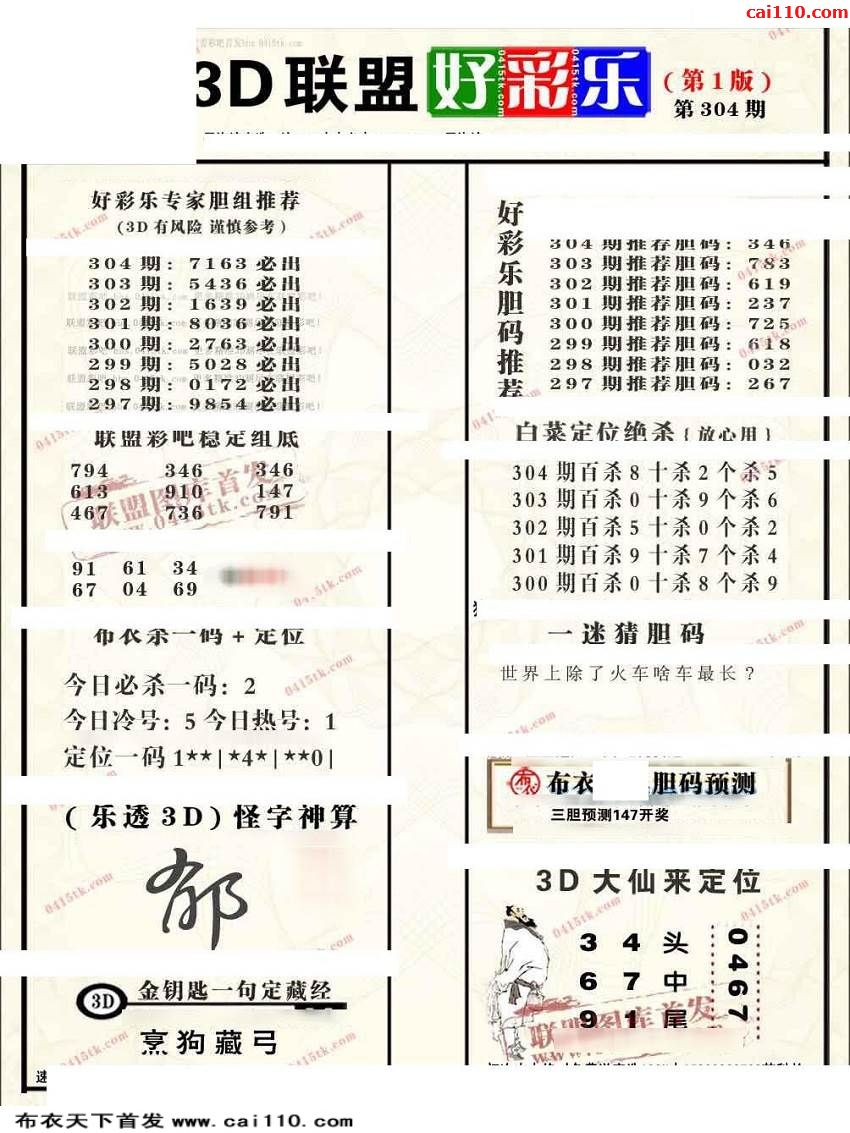 cai110.com
3D联盟 好彩乐 (第1版)
第304期
好彩乐专家胆组推荐
(3D有风险 谨慎参考)
304期: 7163必出
303期: 5436必出
302期: 1639必出
301期: 8036必出
300期: 2763必出
299期: 5028必出
298期: 0172必出
297期: 9854必出
联盟彩吧稳定组底
794 346 346
613 910 147
467 736 791
91 61 34
67 04 69
布衣杀一码+定位
今日必杀一码: 2
今日冷号: 5 今日热号: 1
定位一码 1**|*4*|**0|
(乐透3D)怪字神算
郁
3D 金钥匙一句定藏经
烹狗藏弓
好彩乐胆码推荐
304期推荐胆码: 346
303期推荐胆码: 783
302期推荐胆码: 619
301期推荐胆码: 237
300期推荐胆码: 725
299期推荐胆码: 618
298期推荐胆码: 032
297期推荐胆码: 267
白菜定位绝杀{放心用}
304期百杀8十杀2个杀5
303期百杀0十杀9个杀6
302期百杀5十杀0个杀2
301期百杀9十杀7个杀4
300期百杀0十杀8个杀9
一迷猜胆码
世界上除了火车啥车最长?
布衣 胆码预测
三胆预测147开奖
3D大仙来定位
3 4 头
6 7 中
9 1 尾
0467
联盟图库首发
www.0415tk.com
迷
布衣天下首发 www.cai110.com